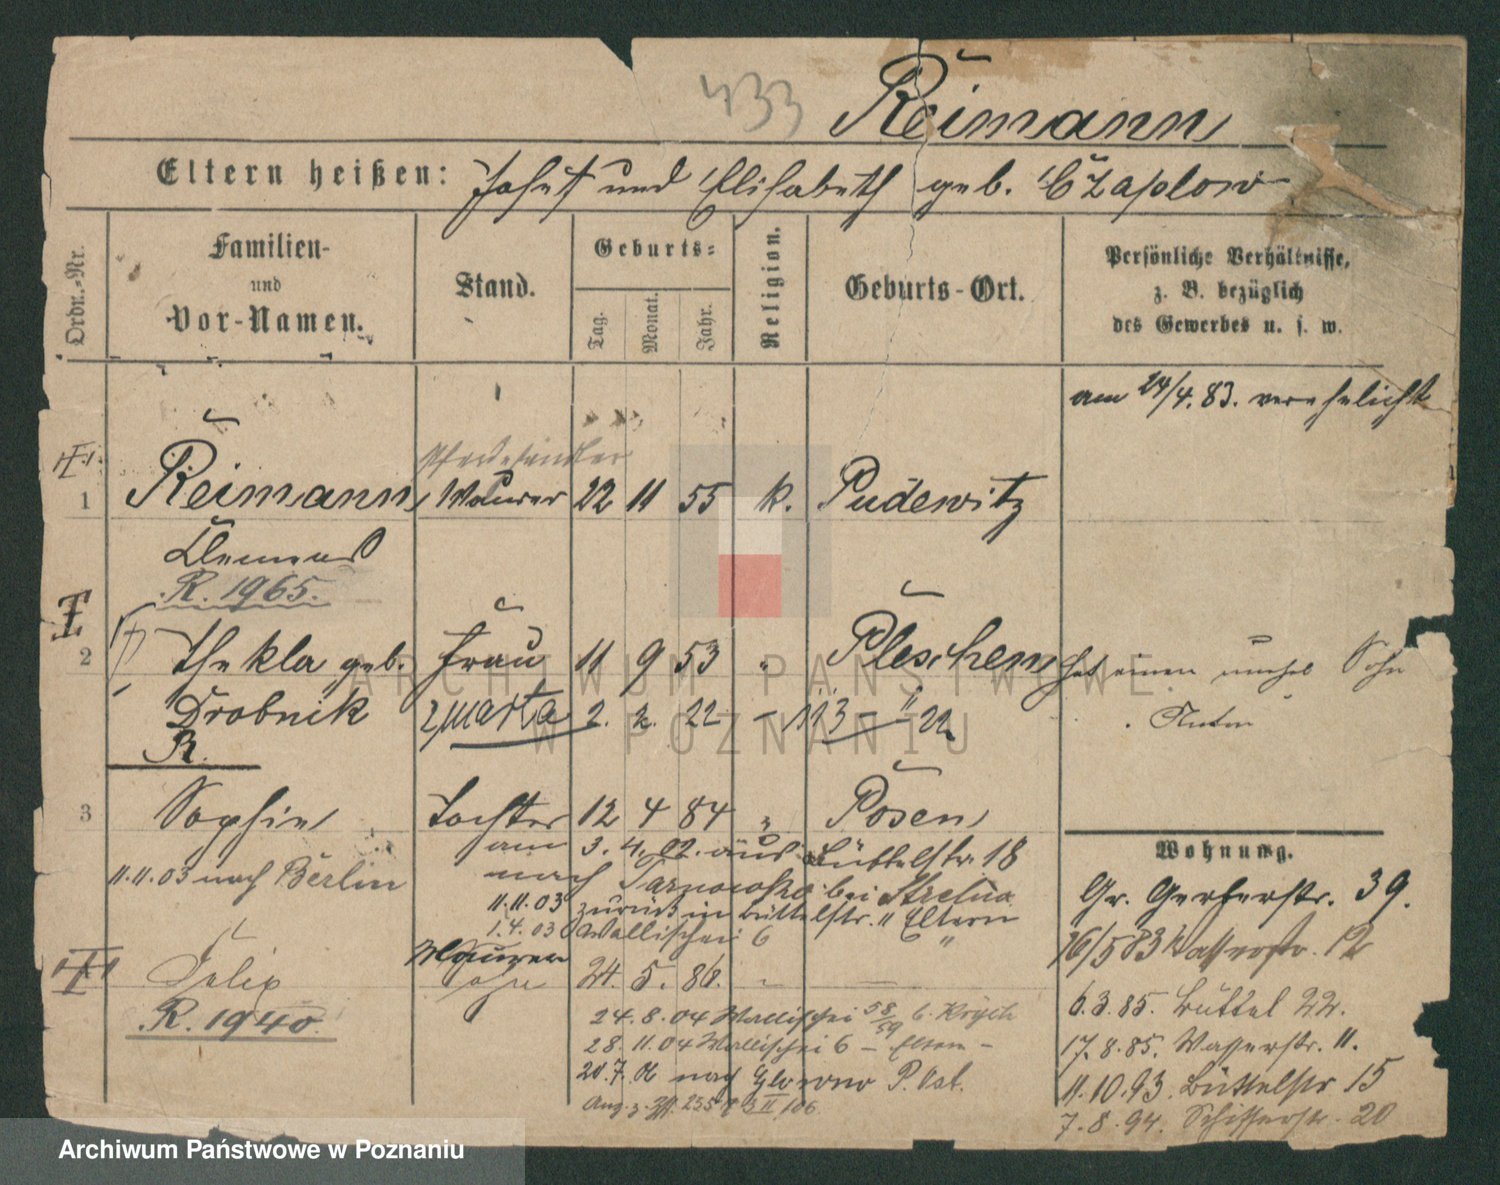 433 Reimann
Eltern heißen: Johst und Elisabeth geb. Czaplow
Ordn.-Nr.
Familien-
und
Vor-Namen.
Stand.
Geburts-
Tag.
Monat.
Jahr.
Religion.
Geburts-Ort.
Persönliche Verhältnisse,
z. B. bezüglich
des Gewerbes u. s. w.
am 24/4. 83. verehelicht
Pferdehändler
1 Reimann Maurer 22 11 55 k. Pudewitz
Clemens
R. 1965.
2 Thekla geb. Frau 11 9 53 " Pleschen hat einen unehel Sohn
Drobnik zmarła 2. 2. 22 - 113 - " 22 Anton
R.
3 Sophie Tochter 12 4 84 " Posen
am 3. 4. 02. aus Büttelstr. 18
11.11.03 nach Berlin
nach Tarnowko bei Strelno
11.11.03 zurück in Büttelstr. 11 Eltern
1.4.03 Wallischei 6 "
Maurer
Felix Sohn 24. 5. 86. - -
R. 1940.
24. 8. 04 Wallischei 58/59 b.
28. 11. 04 Wallischei 6 - Eltern -
20. 7. 06 nach Glowno P. Ost.
Wohnung.
Gr. Gerberstr. 39.
16/5 83 Wasserstr. 12
6.3.85. Büttel 22.
17.8.85. Wasserstr. 11.
11.10.93. Büttelstr 15
7.8.94. Schifferstr. 20
ARCHIWUM PAŃSTWOWE
W POZNANIU
Archiwum Państwowe w Poznaniu